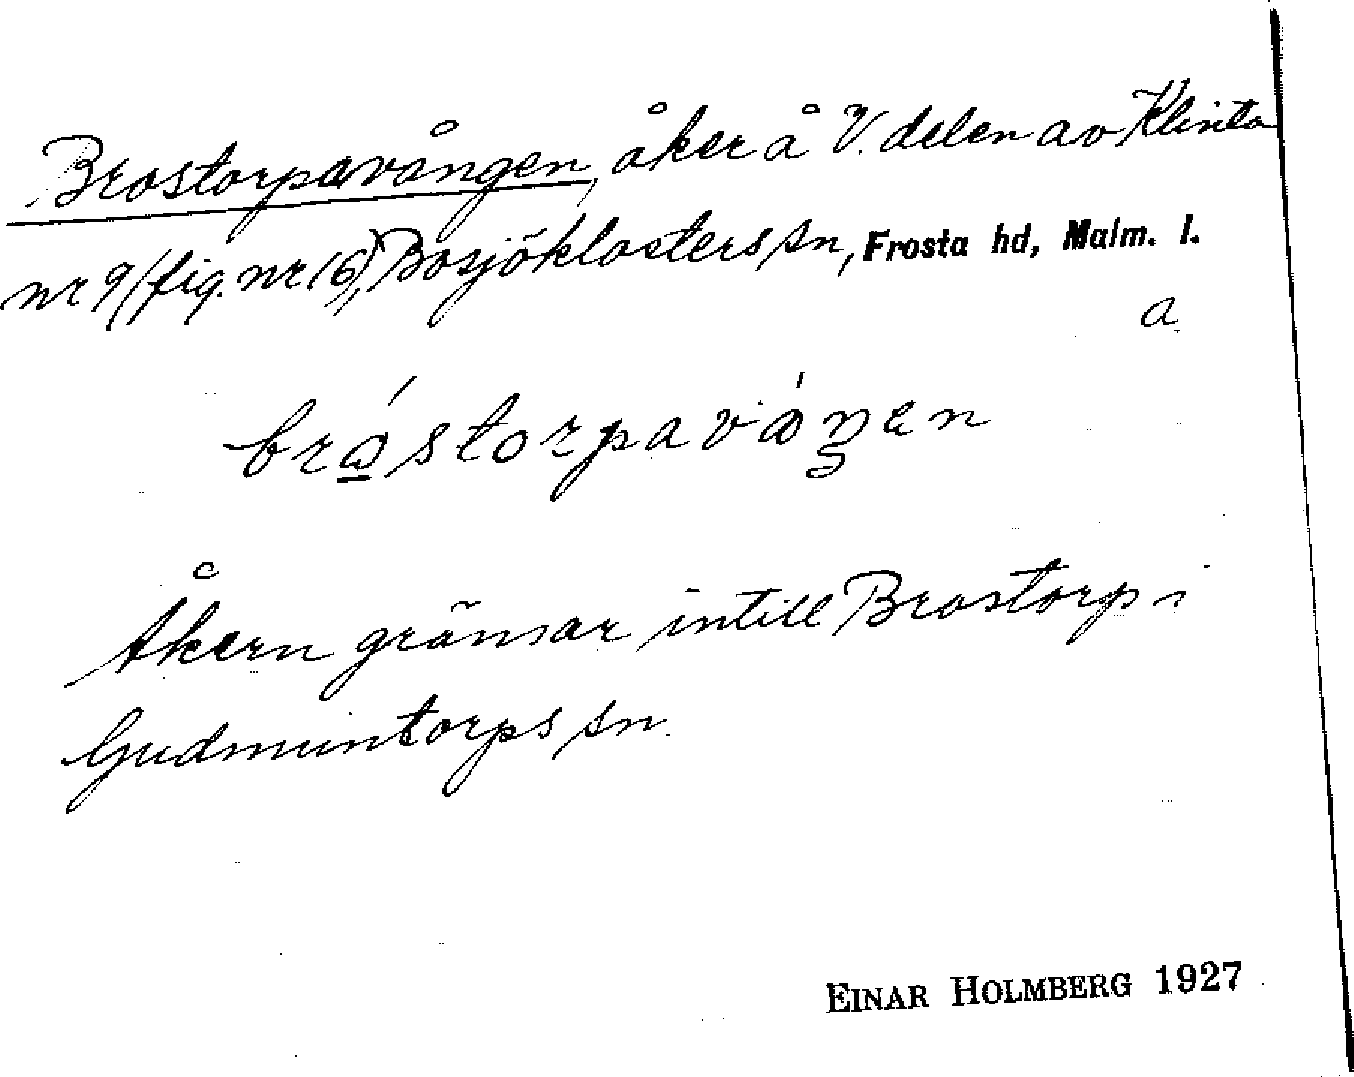 Brostorpavången, åker å V. delen av Klinta
nr 9 (fig. nr 16), Bosjöklosters sn, Frosta hd, Malm. l.
a
bråstorpavåŋen
Åkern gränsar intill Brostorp i
Gudmuntorps sn.
EINAR HOLMBERG 1927